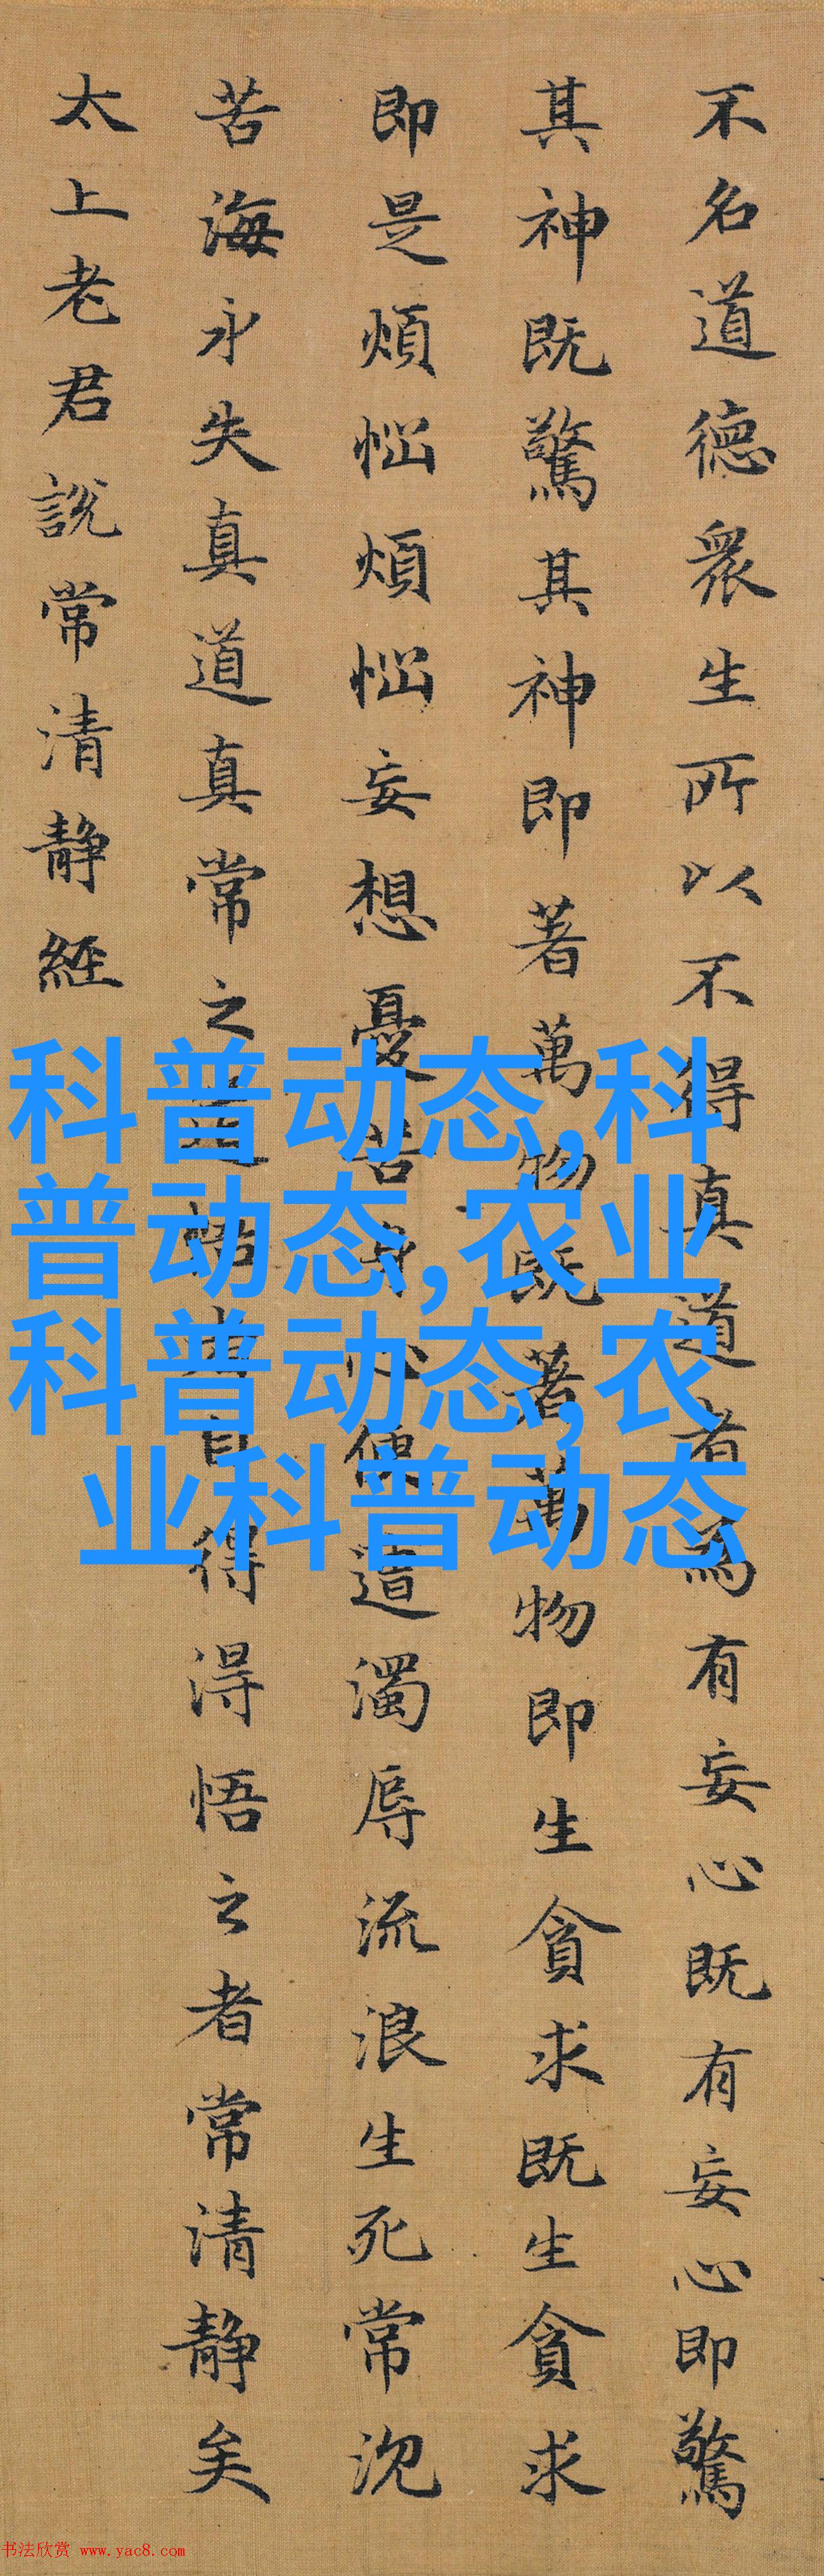 不名道德衆生所以不得真道者為有妄心既有妄心即驚
其神既驚其神即著萬物既著萬物即生貪求既生貪求
即是煩惱煩惱妄想憂苦身心便遭濁辱流浪生死常沉
苦海永失真道真常之道悟者自得得悟之者常清静矣
太上老君說常清静經
科普动态,科
普动态,农业
科普动态,农
业科普动态
书法欣赏 www.yac8.com